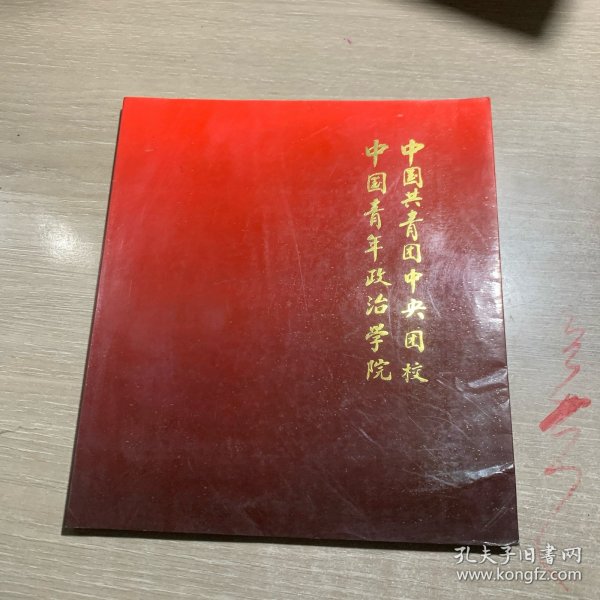 中国共青团中央团校
中国青年政治学院
孔夫子旧书网
www.kongfz.com